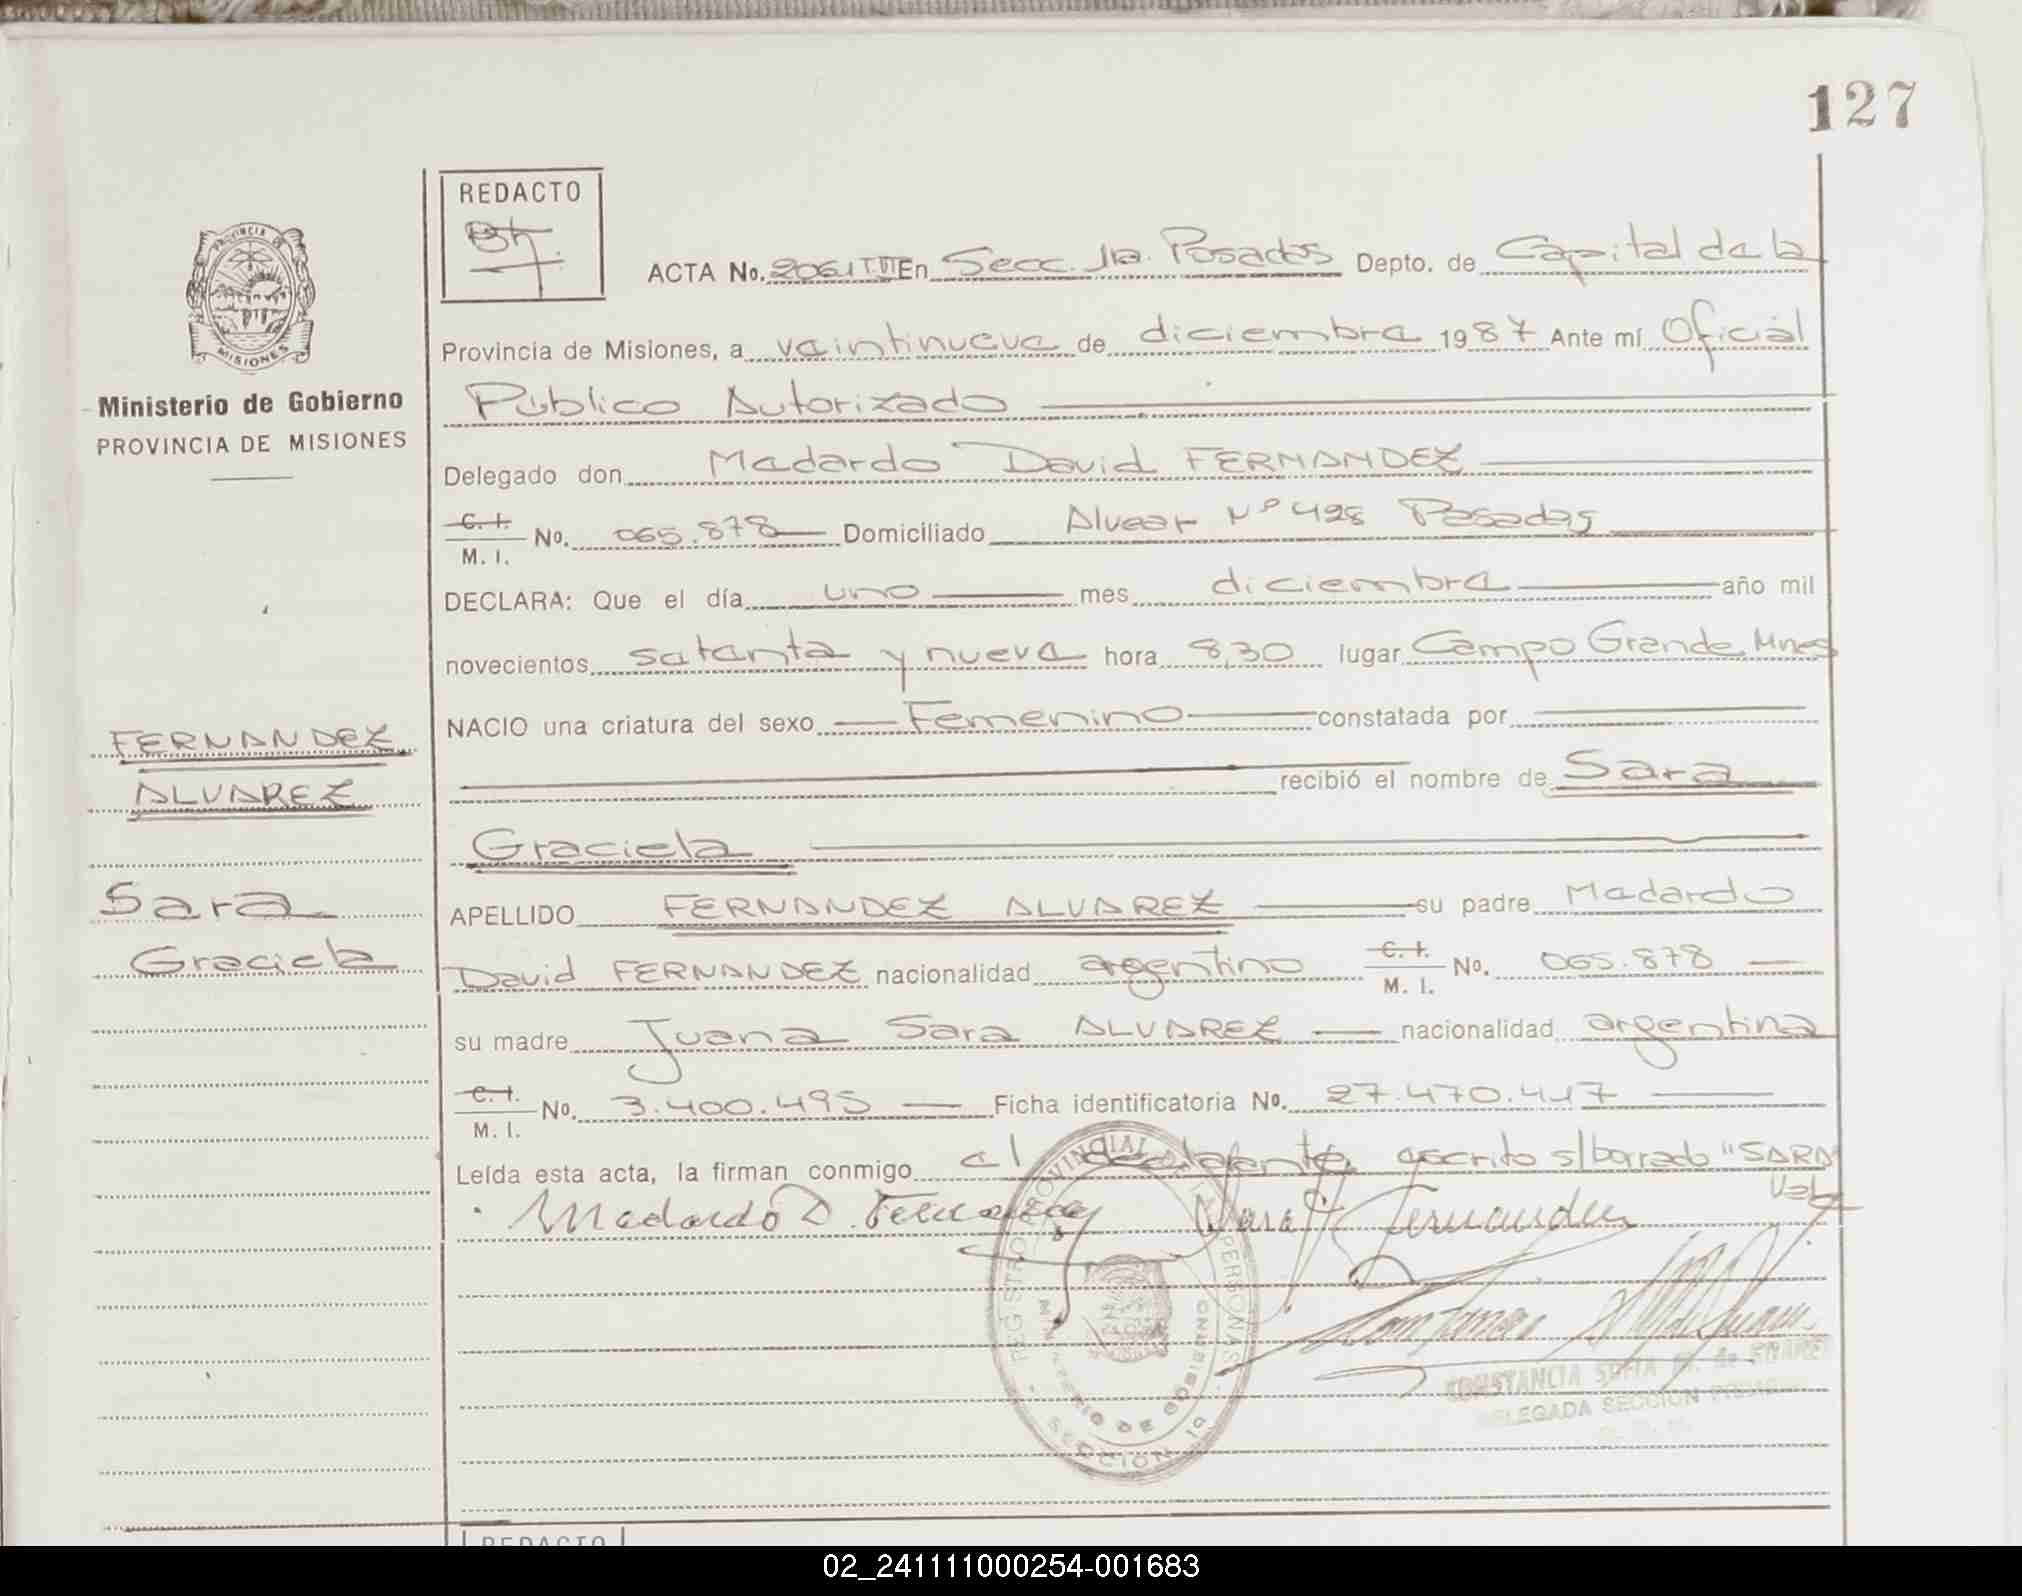 127
REDACTO
ACTA No. 2061 T VI En Secc. 1ra. Posadas Depto. de Capital de la
Provincia de Misiones, a veintinueve de diciembre 1987 Ante mí Oficial
Público Autorizado
Delegado don Medardo David FERNANDEZ
C. I.
M. I.
No. 065.878 Domiciliado Alvear Nº 428 Posadas
DECLARA: Que el día uno mes diciembre año mil
novecientos setenta y nueve hora 8,30 lugar Campo Grande Mnes
NACIO una criatura del sexo Femenino constatada por
recibió el nombre de Sara
Graciela
APELLIDO FERNANDEZ ALVAREZ su padre Medardo
David FERNANDEZ nacionalidad argentino C. I. M. I. No. 065.878
su madre Juana Sara ALVAREZ nacionalidad argentina
C. I.
M. I.
No. 3.400.495 Ficha identificatoria No. 27.470.417
Leída esta acta, la firman conmigo el escrito s/borrado "SARA
Vale
Medardo D. Fernandez Sara Fernandez
PROVINCIA DE
MISIONES
Ministerio de Gobierno
PROVINCIA DE MISIONES
FERNANDEZ
ALVAREZ
Sara
Graciela
REGISTRO PROVINCIAL DE LAS PERSONAS
MINISTERIO DE GOBIERNO
SECCION
CONSTANCIA SOFIA
DELEGADA SECCION
REDACTO
02_241111000254-001683